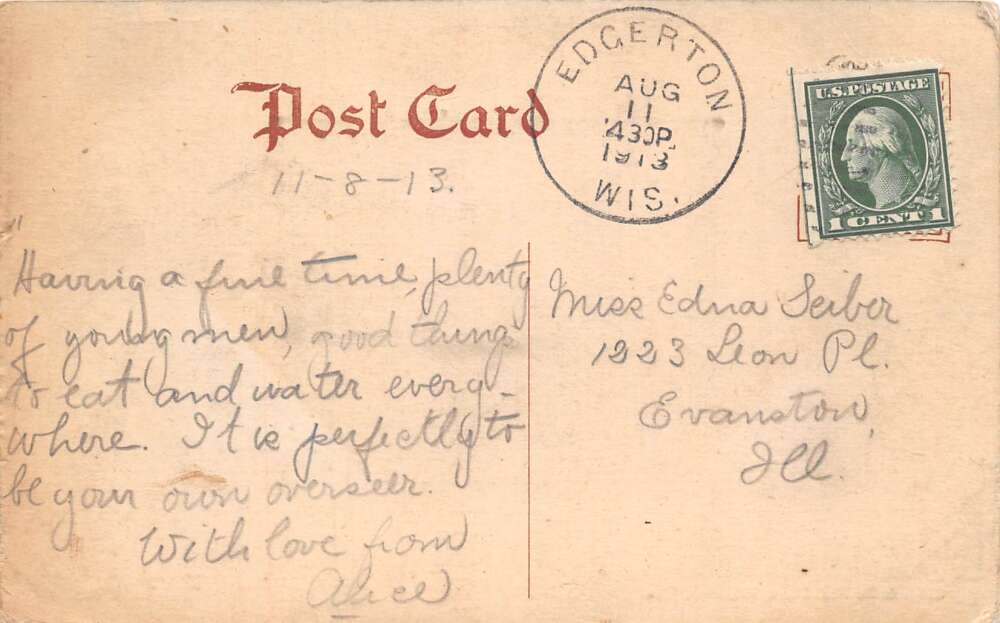 Post Card
EDGERTON
AUG
11
430P.
1913
WIS.
U.S. POSTAGE
1 CENT 1
11-8-13.
"
Having a fine time, plenty
of young men, good things
to eat and water every-
where. It is perfectly to
be your own overseer.
With love from
Alice
Miss Edna Seiber
1223 Leon Pl.
Evanston,
Ill.